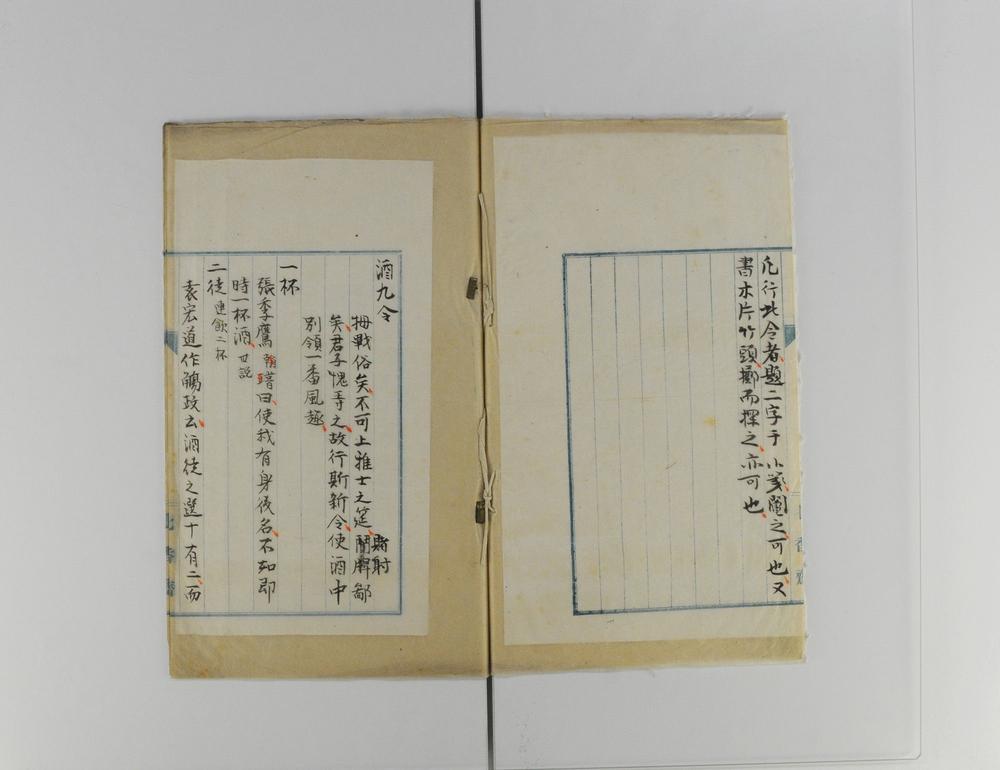 凡行此令者題二字于小箋鬮之可也又
書木片竹頭擲而探之亦可也
酒九令
拇戰俗矣不可上雅士之筵賭射鄙
矣君子愧毒之故行斯新令使酒中
別領一番風趣
一杯
張季鷹翰語曰使我有身後名不如即
時一杯酒世説
二徒連飲二杯
袁宏道作觴政云酒徒之選十有二而